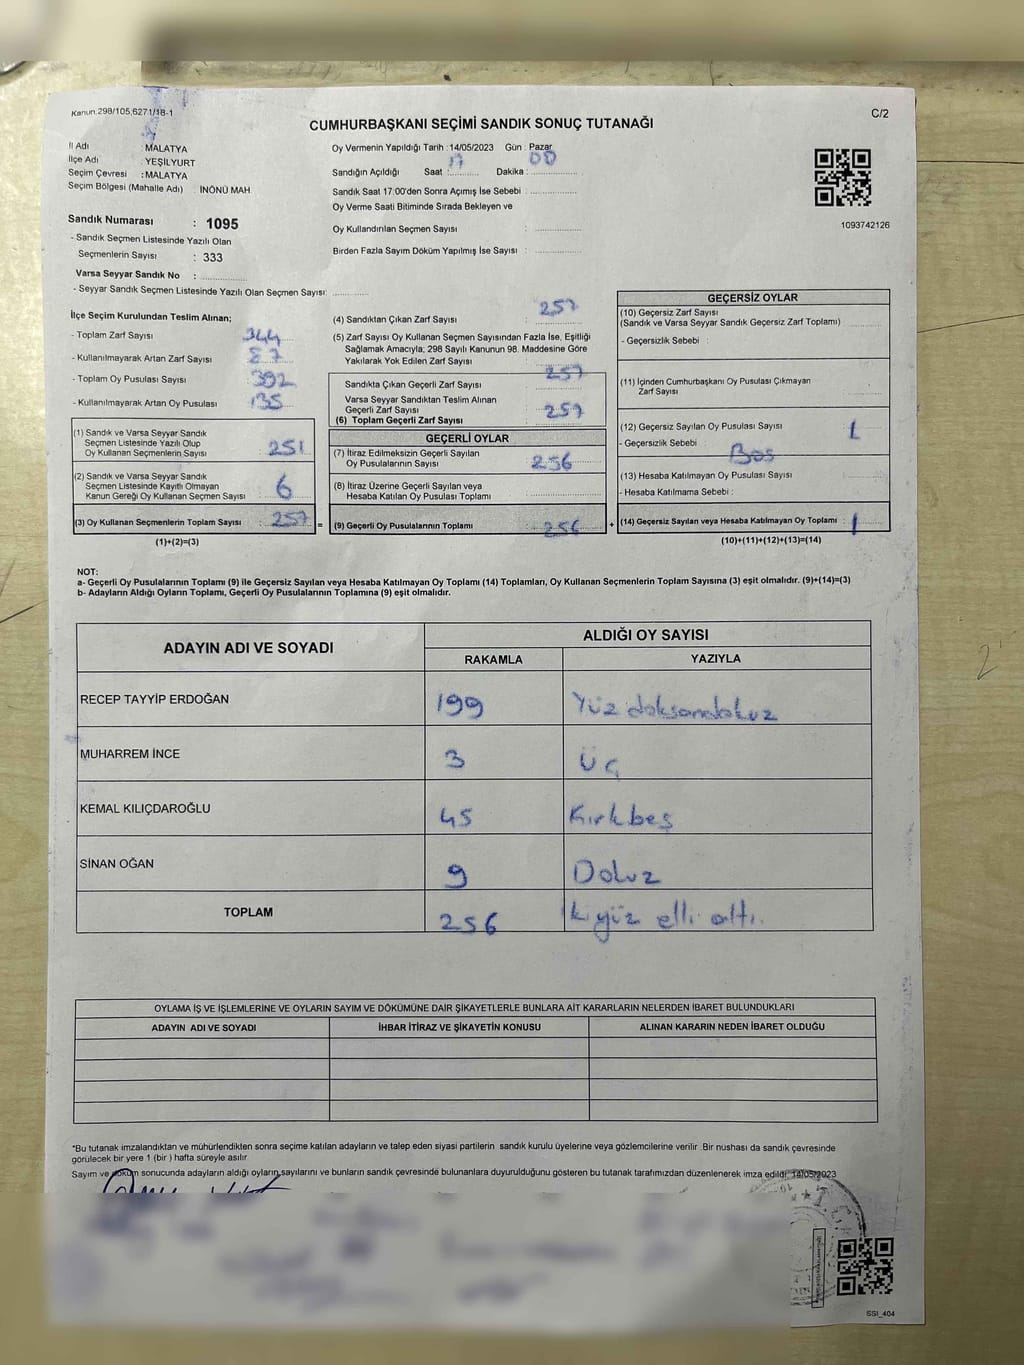 Kanun:298/105,6271/18-1
C/2
CUMHURBAŞKANI SEÇİMİ SANDIK SONUÇ TUTANAĞI
İl Adı : MALATYA
İlçe Adı : YEŞİLYURT
Seçim Çevresi : MALATYA
Seçim Bölgesi (Mahalle Adı) : İNÖNÜ MAH.
Sandık Numarası : 1095
- Sandık Seçmen Listesinde Yazılı Olan
Seçmenlerin Sayısı : 333
Varsa Seyyar Sandık No :
- Seyyar Sandık Seçmen Listesinde Yazılı Olan Seçmen Sayısı:
Oy Vermenin Yapıldığı Tarih : 14/05/2023 Gün : Pazar
Sandığın Açıldığı Saat : 17 Dakika : 00
Sandık Saat 17:00'den Sonra Açımış İse Sebebi :
Oy Verme Saati Bitiminde Sırada Bekleyen ve
Oy Kullandırılan Seçmen Sayısı :
Birden Fazla Sayım Döküm Yapılmış İse Sayısı :
1093742126
İlçe Seçim Kurulundan Teslim Alınan;
- Toplam Zarf Sayısı 344
- Kullanılmayarak Artan Zarf Sayısı 87
- Toplam Oy Pusulası Sayısı 392
- Kullanılmayarak Artan Oy Pusulası 135
(1) Sandık ve Varsa Seyyar Sandık
Seçmen Listesinde Yazılı Olup
Oy Kullanan Seçmenlerin Sayısı : 251
(2) Sandık ve Varsa Seyyar Sandık
Seçmen Listesinde Kayıtlı Olmayan
Kanun Gereği Oy Kullanan Seçmen Sayısı : 6
(3) Oy Kullanan Seçmenlerin Toplam Sayısı : 257 =
(1)+(2)=(3)
(4) Sandıktan Çıkan Zarf Sayısı : 257
(5) Zarf Sayısı Oy Kullanan Seçmen Sayısından Fazla İse, Eşitliği
Sağlamak Amacıyla; 298 Sayılı Kanunun 98. Maddesine Göre
Yakılarak Yok Edilen Zarf Sayısı :
Sandıkta Çıkan Geçerli Zarf Sayısı : 257
Varsa Seyyar Sandıktan Teslim Alınan
Geçerli Zarf Sayısı :
(6) Toplam Geçerli Zarf Sayısı : 257
GEÇERLİ OYLAR
(7) İtiraz Edilmeksizin Geçerli Sayılan
Oy Pusulalarının Sayısı : 256
(8) İtiraz Üzerine Geçerli Sayılan veya
Hesaba Katılan Oy Pusulası Toplamı :
(9) Geçerli Oy Pusulalarının Toplamı : 256 +
GEÇERSİZ OYLAR
(10) Geçersiz Zarf Sayısı
(Sandık ve Varsa Seyyar Sandık Geçersiz Zarf Toplamı)
- Geçersizlik Sebebi :
(11) İçinden Cumhurbaşkanı Oy Pusulası Çıkmayan
Zarf Sayısı
(12) Geçersiz Sayılan Oy Pusulası Sayısı : 1
- Geçersizlik Sebebi : Boş
(13) Hesaba Katılmayan Oy Pusulası Sayısı :
- Hesaba Katılmama Sebebi :
(14) Geçersiz Sayılan veya Hesaba Katılmayan Oy Toplamı : 1
(10)+(11)+(12)+(13)=(14)
NOT:
a- Geçerli Oy Pusulalarının Toplamı (9) ile Geçersiz Sayılan veya Hesaba Katılmayan Oy Toplamı (14) Toplamları, Oy Kullanan Seçmenlerin Toplam Sayısına (3) eşit olmalıdır. (9)+(14)=(3)
b- Adayların Aldığı Oyların Toplamı, Geçerli Oy Pusulalarının Toplamına (9) eşit olmalıdır.
ADAYIN ADI VE SOYADI
ALDIĞI OY SAYISI
RAKAMLA YAZIYLA
RECEP TAYYİP ERDOĞAN 199 Yüz doksandokuz
MUHARREM İNCE 3 Üç
KEMAL KILIÇDAROĞLU 45 Kırkbeş
SİNAN OĞAN 9 Dokuz
TOPLAM 256 İkiyüz elli altı.
OYLAMA İŞ VE İŞLEMLERİNE VE OYLARIN SAYIM VE DÖKÜMÜNE DAİR ŞİKAYETLERLE BUNLARA AİT KARARLARIN NELERDEN İBARET BULUNDUKLARI
ADAYIN ADI VE SOYADI İHBAR İTİRAZ VE ŞİKAYETİN KONUSU ALINAN KARARIN NEDEN İBARET OLDUĞU
*Bu tutanak imzalandıktan ve mühürlendikten sonra seçime katılan adayların ve talep eden siyasi partilerin sandık kurulu üyelerine veya gözlemcilerine verilir. Bir nüshası da sandık çevresinde
görülecek bir yere 1 (bir ) hafta süreyle asılır.
Sayım ve döküm sonucunda adayların aldığı oyların sayılarını ve bunların sandık çevresinde bulunanlara duyurulduğunu gösteren bu tutanak tarafımızdan düzenlenerek imza edildi. 14/05/2023
SSİ_404